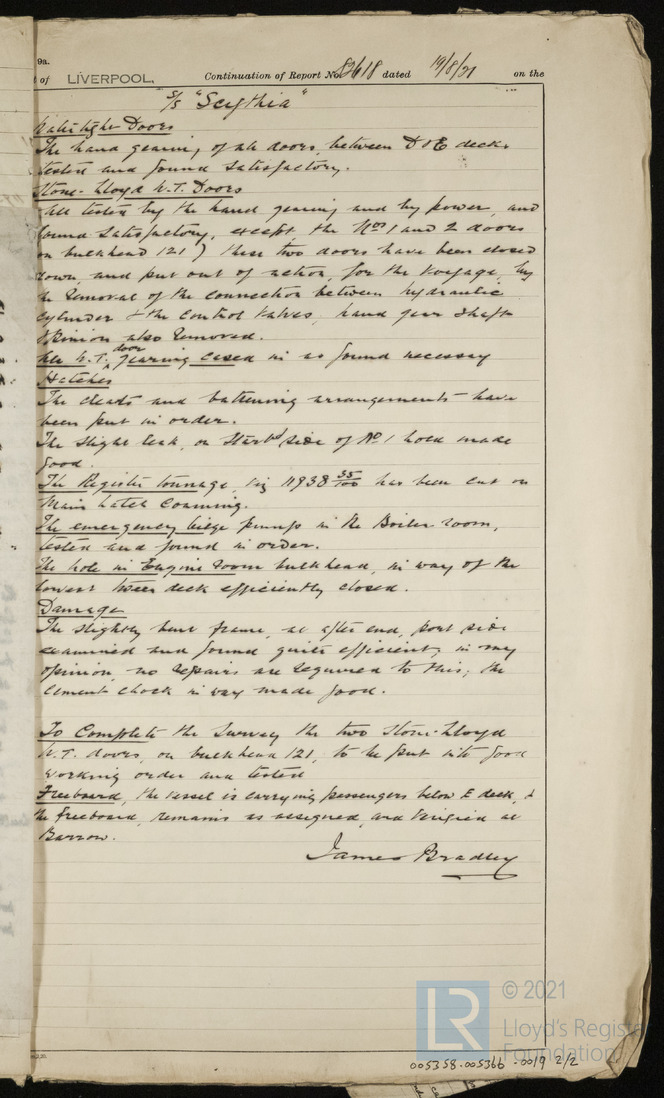 9a.
of LIVERPOOL. Continuation of Report No. 82618 dated 19/8/21 on the
S/S "Scythia"
Watertight Doors
The hand gearing of all doors, between D & E decks
tested and found satisfactory.
Stone-Lloyd W.T. Doors
All tested by the hand gearing and by power, and
found satisfactory, except the Nos 1 and 2 doors
on bulkhead 121) these two doors have been closed
down and put out of action, for the voyage, by
the removal of the connection between hydraulic
cylinder & the control valves, hand gear shaft
& pinion also removed.
All W.T. door gearing cased in as found necessary
Hatches
The cleats and battening arrangements have
been put in order.
The slight leak, on Starbd side of No 1 hold made
good.
The Register tonnage, viz 11938 35/100 has been cut on
Main hatch coaming.
The emergency bilge pump in the Boiler room,
tested and found in order.
The hole in Engine room bulkhead, in way of the
lowest tween deck efficiently closed.
Damage
The slightly bent frame, at after end, port side
examined and found quite efficient, in my
opinion, no repairs are required to this; the
cement chock in way made good.
To Complete the Survey the two Stone-Lloyd
W.T. doors, on bulkhead 121, to be put into good
working order and tested
Freeboard, the vessel is carrying passengers below E deck, &
the freeboard, remains as assigned, and verified at
Barrow.
James Bradley
LR
© 2021
Lloyd's Register
Foundation
005358-005366-0019 2/2